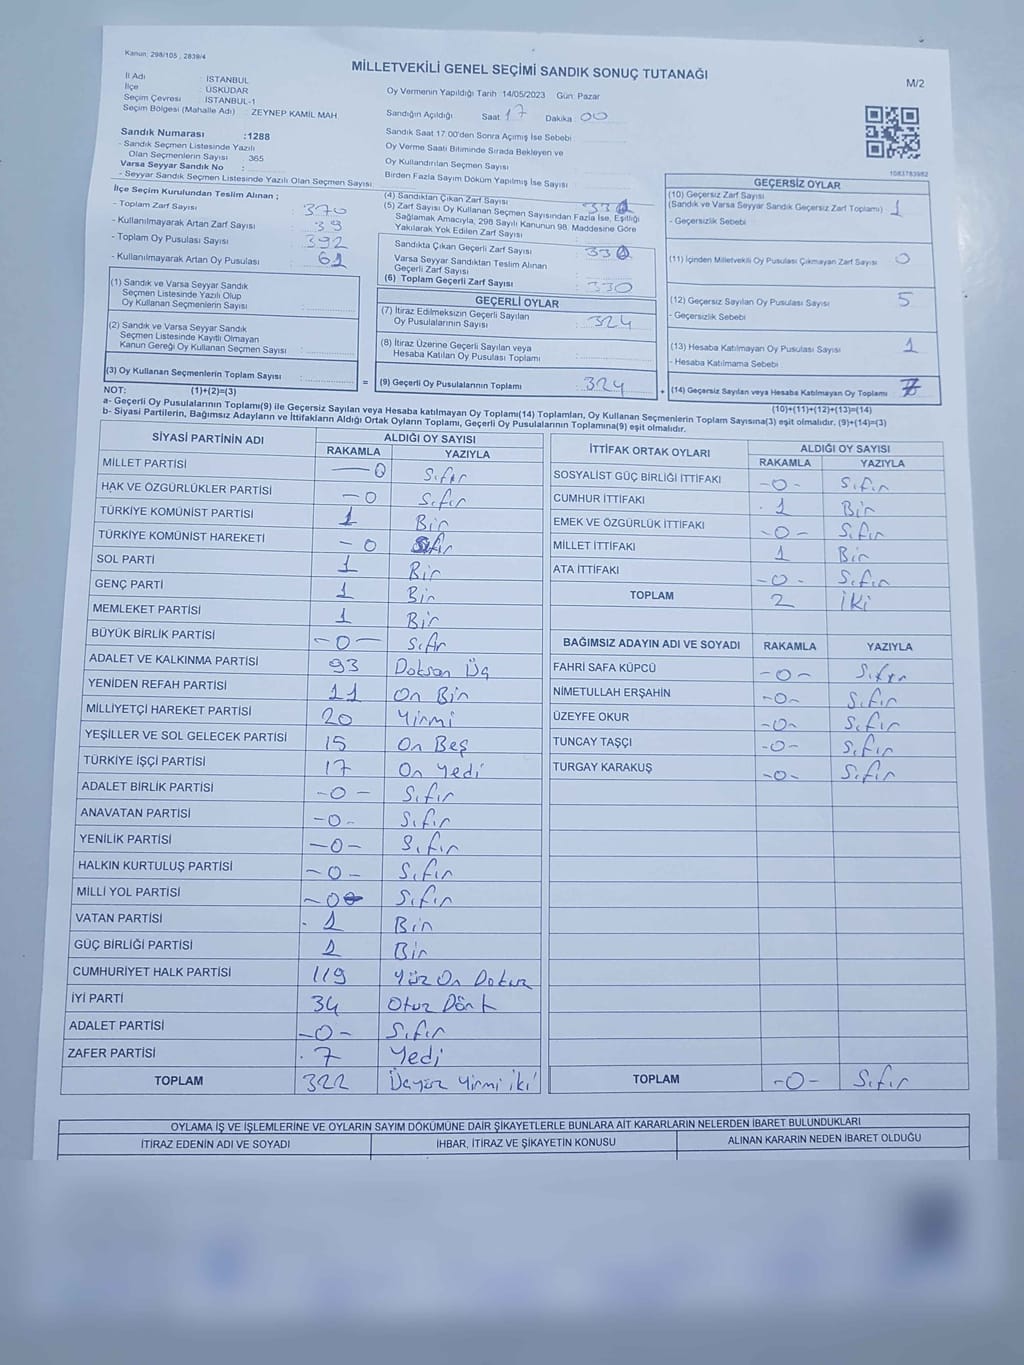 Kanun: 298/105 ; 2839/4
MİLLETVEKİLİ GENEL SEÇİMİ SANDIK SONUÇ TUTANAĞI
M/2
İl Adı : İSTANBUL
İlçe : ÜSKÜDAR
Seçim Çevresi : İSTANBUL-1
Seçim Bölgesi (Mahalle Adı) : ZEYNEP KAMİL MAH
Sandık Numarası :1288
- Sandık Seçmen Listesinde Yazılı
Olan Seçmenlerin Sayısı : 365
Varsa Seyyar Sandık No :
- Seyyar Sandık Seçmen Listesinde Yazılı Olan Seçmen Sayısı:
Oy Vermenin Yapıldığı Tarih :14/05/2023 Gün: Pazar
Sandığın Açıldığı Saat 17 Dakika 00
Sandık Saat 17:00'den Sonra Açılmış İse Sebebi
Oy Verme Saati Bitiminde Sırada Bekleyen ve
Oy Kullandırılan Seçmen Sayısı
Birden Fazla Sayım Döküm Yapılmış İse Sayısı
1083783982
İlçe Seçim Kurulundan Teslim Alınan ;
- Toplam Zarf Sayısı : 370
- Kullanılmayarak Artan Zarf Sayısı : 39
- Toplam Oy Pusulası Sayısı : 392
- Kullanılmayarak Artan Oy Pusulası : 61
(1) Sandık ve Varsa Seyyar Sandık
Seçmen Listesinde Yazılı Olup
Oy Kullanan Seçmenlerin Sayısı :
(2) Sandık ve Varsa Seyyar Sandık
Seçmen Listesinde Kayıtlı Olmayan
Kanun Gereği Oy Kullanan Seçmen Sayısı :
(3) Oy Kullanan Seçmenlerin Toplam Sayısı :
(4) Sandıktan Çıkan Zarf Sayısı : 331
(5) Zarf Sayısı Oy Kullanan Seçmen Sayısından Fazla İse, Eşitliği
Sağlamak Amacıyla, 298 Sayılı Kanunun 98. Maddesine Göre
Yakılarak Yok Edilen Zarf Sayısı :
Sandıkta Çıkan Geçerli Zarf Sayısı : 330
Varsa Seyyar Sandıktan Teslim Alınan
Geçerli Zarf Sayısı
(6) Toplam Geçerli Zarf Sayısı : 330
GEÇERLİ OYLAR
(7) İtiraz Edilmeksizin Geçerli Sayılan
Oy Pusulalarının Sayısı : 324
(8) İtiraz Üzerine Geçerli Sayılan veya
Hesaba Katılan Oy Pusulası Toplamı :
= (9) Geçerli Oy Pusulalarının Toplamı : 324
GEÇERSİZ OYLAR
(10) Geçersiz Zarf Sayısı
(Sandık ve Varsa Seyyar Sandık Geçersiz Zarf Toplamı) 1
- Geçersizlik Sebebi
(11) İçinden Milletvekili Oy Pusulası Çıkmayan Zarf Sayısı 0
(12) Geçersiz Sayılan Oy Pusulası Sayısı 5
- Geçersizlik Sebebi
(13) Hesaba Katılmayan Oy Pusulası Sayısı 1
- Hesaba Katılmama Sebebi
+ (14) Geçersiz Sayılan veya Hesaba Katılmayan Oy Toplamı 7
NOT: (1)+(2)=(3) (10)+(11)+(12)+(13)=(14)
a- Geçerli Oy Pusulalarının Toplamı(9) ile Geçersiz Sayılan veya Hesaba katılmayan Oy Toplamı(14) Toplamları, Oy Kullanan Seçmenlerin Toplam Sayısına(3) eşit olmalıdır. (9)+(14)=(3)
b- Siyasi Partilerin, Bağımsız Adayların ve İttifakların Aldığı Ortak Oyların Toplamı, Geçerli Oy Pusulalarının Toplamına(9) eşit olmalıdır.
SİYASİ PARTİNİN ADI ALDIĞI OY SAYISI
RAKAMLA YAZIYLA
MİLLET PARTİSİ —0 Sıfır
HAK VE ÖZGÜRLÜKLER PARTİSİ —0 Sıfır
TÜRKİYE KOMÜNİST PARTİSİ 1 Bir
TÜRKİYE KOMÜNİST HAREKETİ - 0 Sıfır
SOL PARTİ 1 Bir
GENÇ PARTİ 1 Bir
MEMLEKET PARTİSİ 1 Bir
BÜYÜK BİRLİK PARTİSİ -0- Sıfır
ADALET VE KALKINMA PARTİSİ 93 Doksan Üç
YENİDEN REFAH PARTİSİ 11 On Bir
MİLLİYETÇİ HAREKET PARTİSİ 20 Yirmi
YEŞİLLER VE SOL GELECEK PARTİSİ 15 On Beş
TÜRKİYE İŞÇİ PARTİSİ 17 On Yedi
ADALET BİRLİK PARTİSİ -0- Sıfır
ANAVATAN PARTİSİ -0- Sıfır
YENİLİK PARTİSİ -0- Sıfır
HALKIN KURTULUŞ PARTİSİ -0- Sıfır
MİLLİ YOL PARTİSİ -0- Sıfır
VATAN PARTİSİ 1 Bir
GÜÇ BİRLİĞİ PARTİSİ 1 Bir
CUMHURİYET HALK PARTİSİ 119 Yüz On Dokuz
İYİ PARTİ 34 Otuz Dört
ADALET PARTİSİ -0- Sıfır
ZAFER PARTİSİ 7 Yedi
TOPLAM 322 Üçyüz Yirmi iki
İTTİFAK ORTAK OYLARI ALDIĞI OY SAYISI
RAKAMLA YAZIYLA
SOSYALİST GÜÇ BİRLİĞİ İTTİFAKI -0- Sıfır
CUMHUR İTTİFAKI 1 Bir
EMEK VE ÖZGÜRLÜK İTTİFAKI -0- Sıfır
MİLLET İTTİFAKI 1 Bir
ATA İTTİFAKI -0- Sıfır
TOPLAM 2 İki
BAĞIMSIZ ADAYIN ADI VE SOYADI RAKAMLA YAZIYLA
FAHRİ SAFA KÜPCÜ -0- Sıfır
NİMETULLAH ERŞAHİN -0- Sıfır
ÜZEYFE OKUR -0- Sıfır
TUNCAY TAŞÇI -0- Sıfır
TURGAY KARAKUŞ -0- Sıfır
TOPLAM -0- Sıfır
OYLAMA İŞ VE İŞLEMLERİNE VE OYLARIN SAYIM DÖKÜMÜNE DAİR ŞİKAYETLERLE BUNLARA AİT KARARLARIN NELERDEN İBARET BULUNDUKLARI
İTİRAZ EDENİN ADI VE SOYADI İHBAR, İTİRAZ VE ŞİKAYETİN KONUSU ALINAN KARARIN NEDEN İBARET OLDUĞU